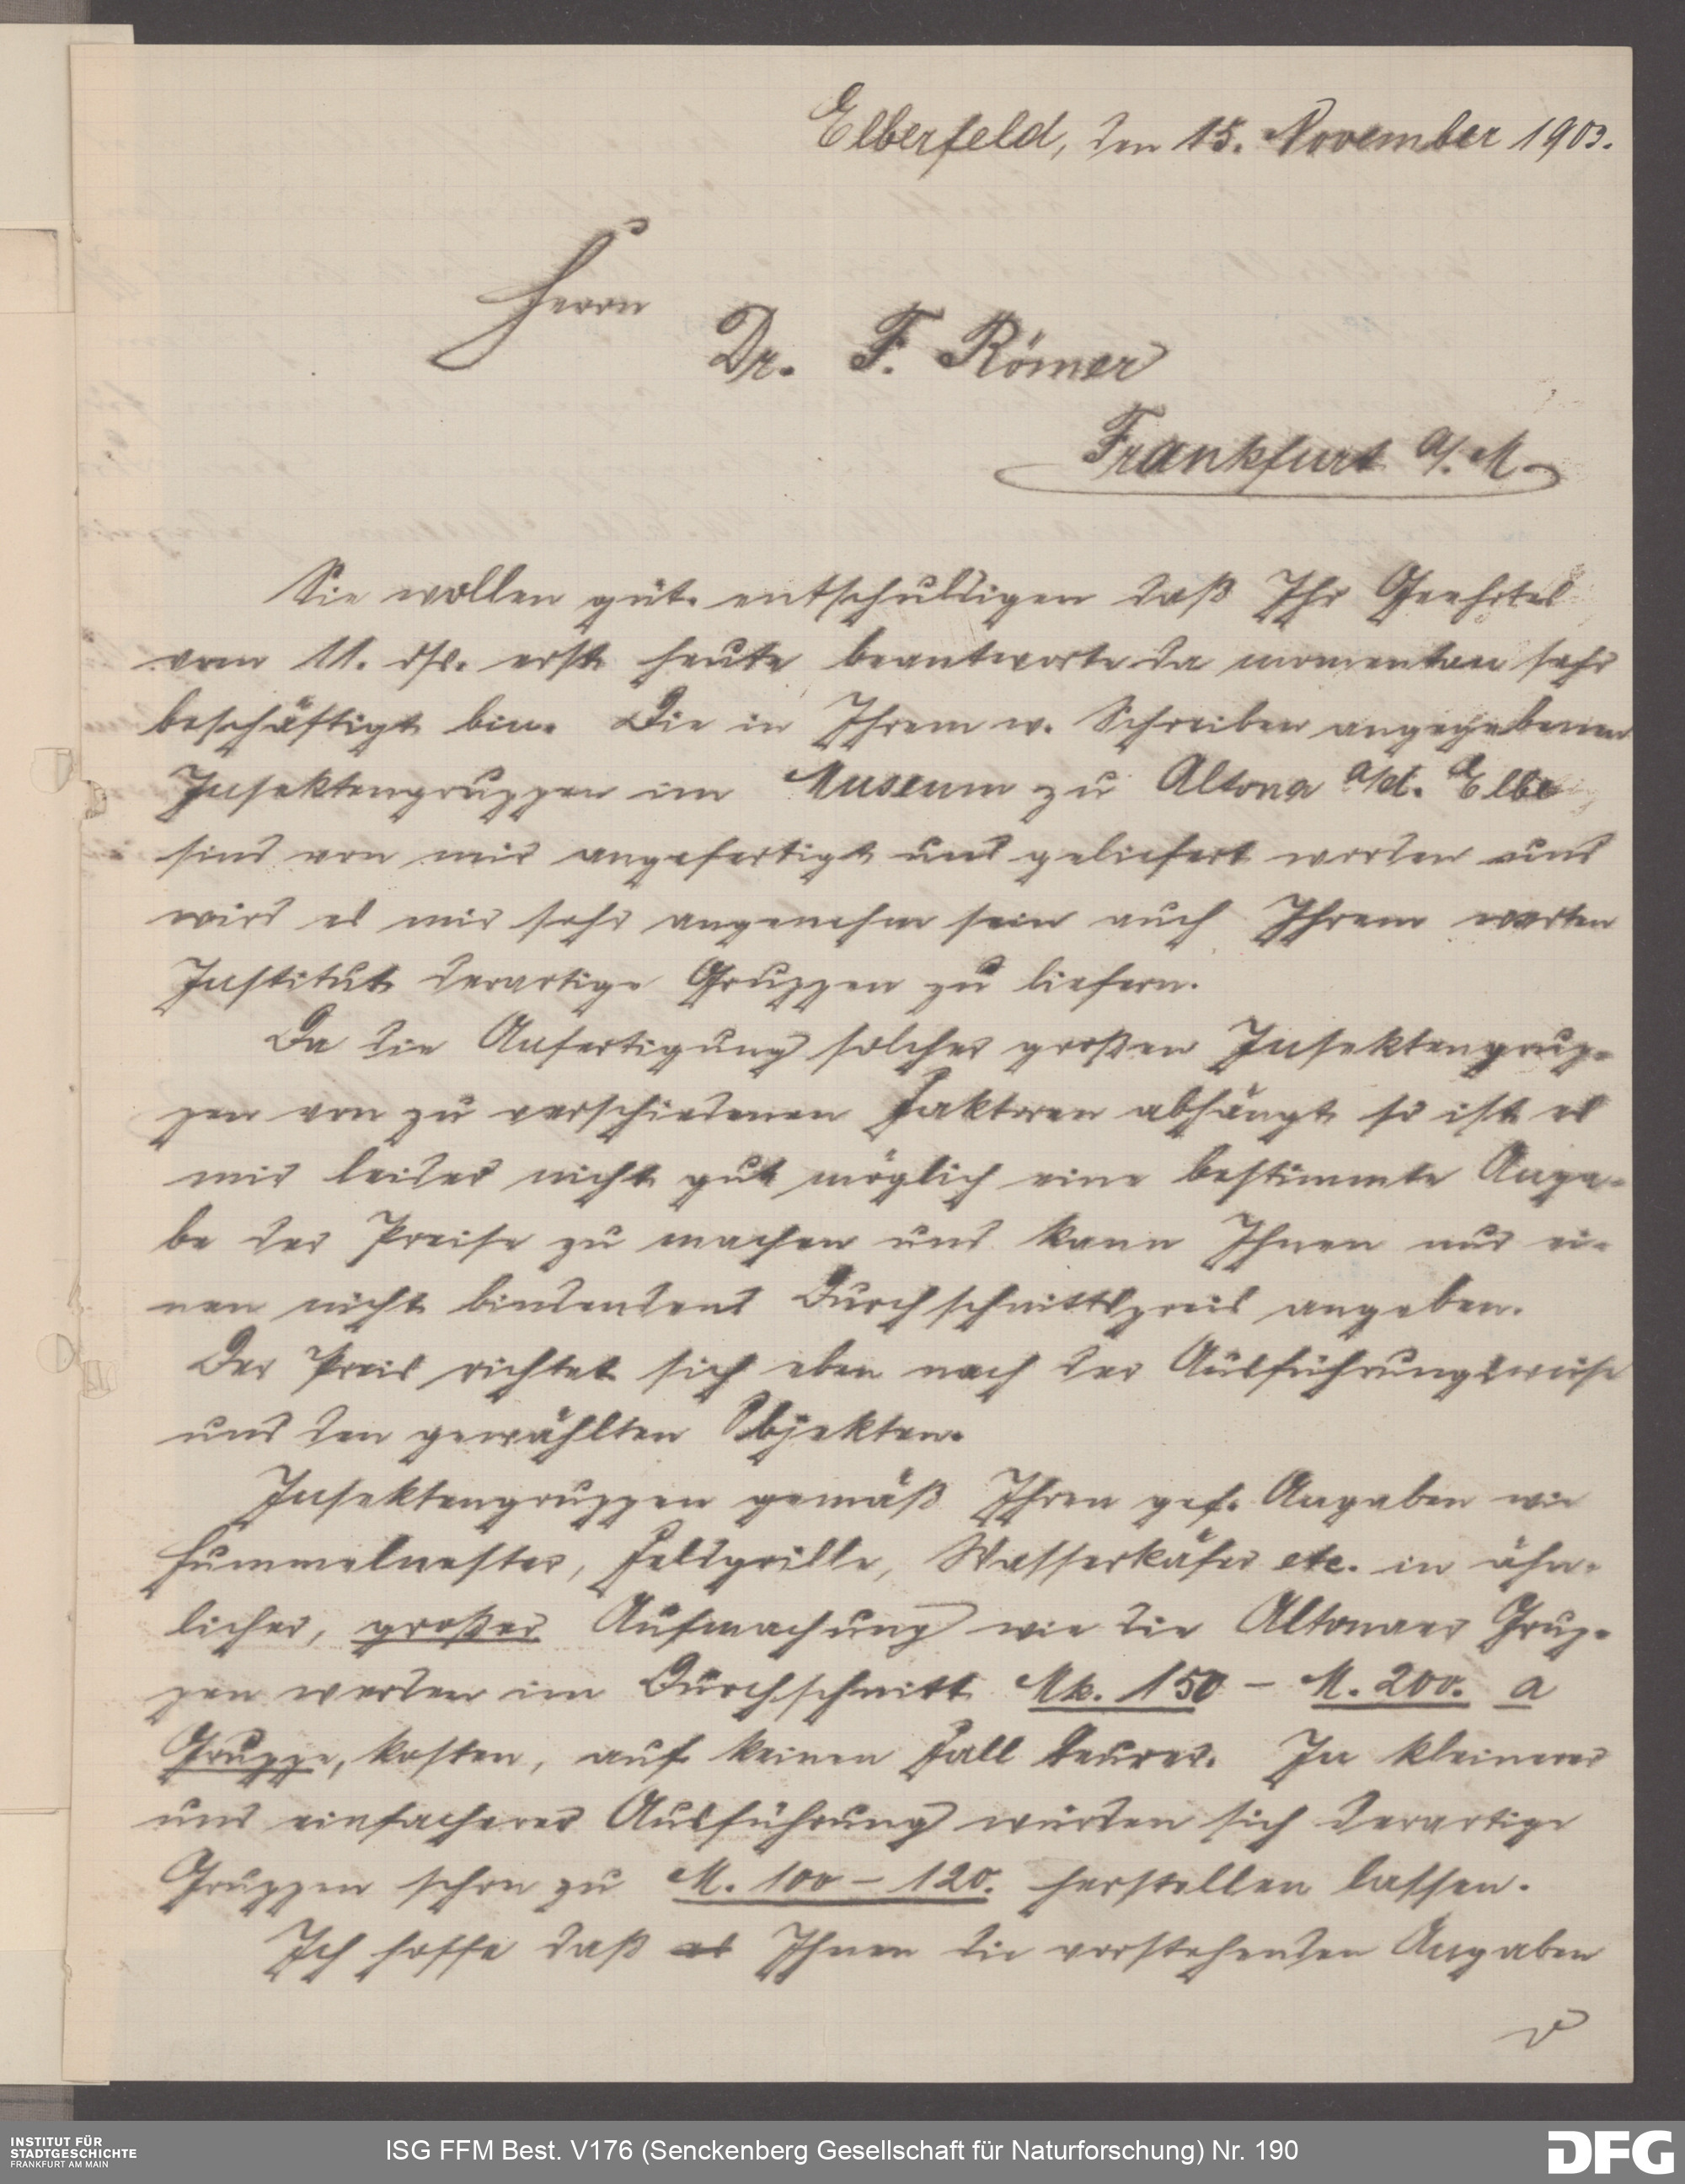 Elberfeld, den 15. November 1903.
Herrn
Dr. F. Römer
Frankfurt a/. M.
Sie wollen güt. entschuldigen daß Ihr Geehrtes
vom 11. ds. erst heute beantworte da momentan sehr
beschäftigt bin. Die in Ihrem w. Schreiben angegebenen
Insektengruppen im Museum zu Altona a/d. Elbe
sind von mir angefertigt und geliefert worden und
wird es mir sehr angenehm sein auch Ihrem werten
Institut derartige Gruppen zu liefern.
Da die Anfertigung solcher großen Insektengrup-
pen von zu verschiedenen Faktoren abhängt so ist es
mir leider nicht gut möglich eine bestimmte Anga-
be der Preise zu machen und kann Ihnen nur ei-
nen nicht bindendend Durchschnittspreis angeben.
Der Preis richtet sich eben nach der Ausführungsweise
und den gewählten Objekten.
Insektengruppen gemäß Ihren gef. Angaben wie
Hummelnester, Feldgrille, Wasserkäfer etc. in ähn-
licher, großer Aufmachung wie die Altonaer Grup-
pen werden im Durchschnitt Mk. 150 - M. 200. a
Gruppe, kosten, auf keinen Fall teurer. In kleinerer
und einfacherer Ausführung würden sich derartige
Gruppen schon zu M. 100 - 120. herstellen lassen.
Ich hoffe daß es Ihnen die vorstehenden Angaben
INSTITUT FÜR
STADTGESCHICHTE
FRANKFURT AM MAIN
ISG FFM Best. V176 (Senckenberg Gesellschaft für Naturforschung) Nr. 190
DFG